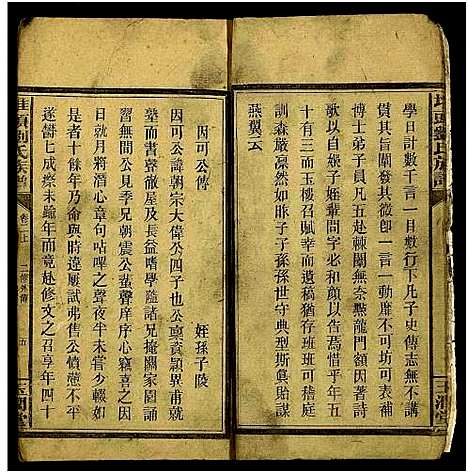 埂頭劉氏族譜
學日計數千言一目數行下凡子史傳志無不講
貫其旨闡發其微即一言一動靡不可坊可表補
博士弟子員五赴棘闈無奈點龍門額因著讀
歌以自緩子姪輩問字必和顏以告焉惜乎年五
十有三而玉樓召賦幸而遺稿猶存班班可稽庭
訓森嚴凜然如昨子子孫孫世守典型斯眞貽厥
燕翼云
玉潤堂
因可公傳
姪孫子陵
因可公諱朝宗大偉公四子也公稟資頴異甫成
童而書聲徹屋及長益嗜學隨諸兄掩關家園誦
習無間公見季兄朝震公蜚聲庠序心竊喜之因
日就月將潛心章句呫嗶之聲夜半未嘗少輟如
是者十餘年乃命與時違屢試弗售公憤懣不平
遂嚮七成瘵未踰年而竟赴修文之召享年四十
劉氏族譜
卷二上
二修外傳
五
玉潤堂